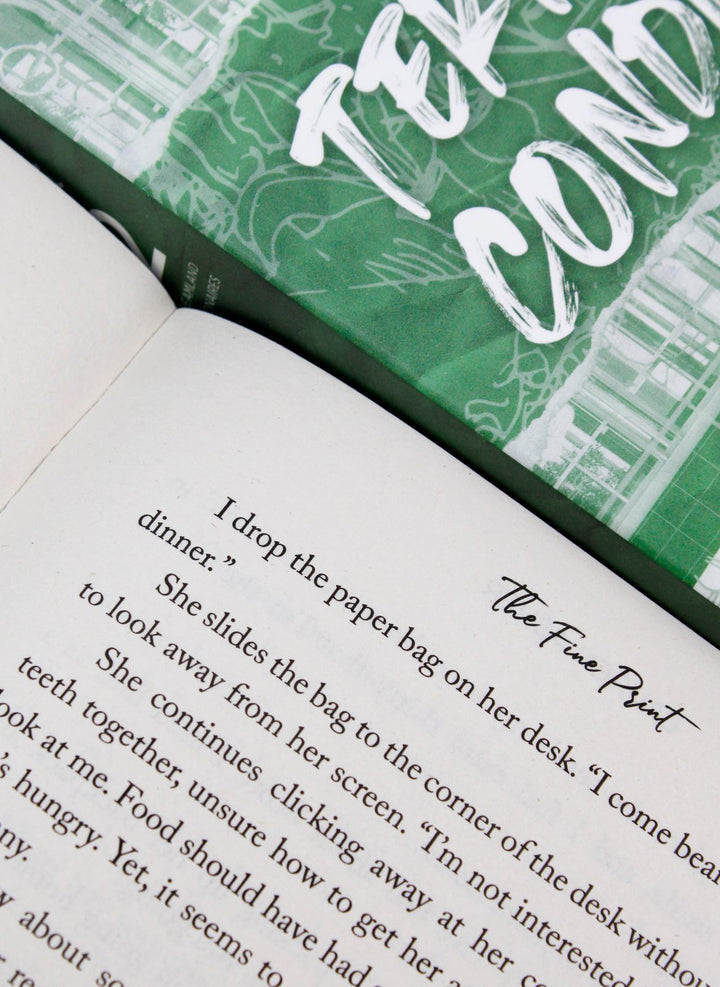 TER
COND
AMLAND
The Fine Print
I drop the paper bag on her desk. “I come bear
dinner.”
She slides the bag to the corner of the desk withou
to look away from her screen. “I’m not interested
She continues clicking away at her co
teeth together, unsure how to get her a
look at me. Food should have had
’s hungry. Yet, it seems to
ny.
about so
re